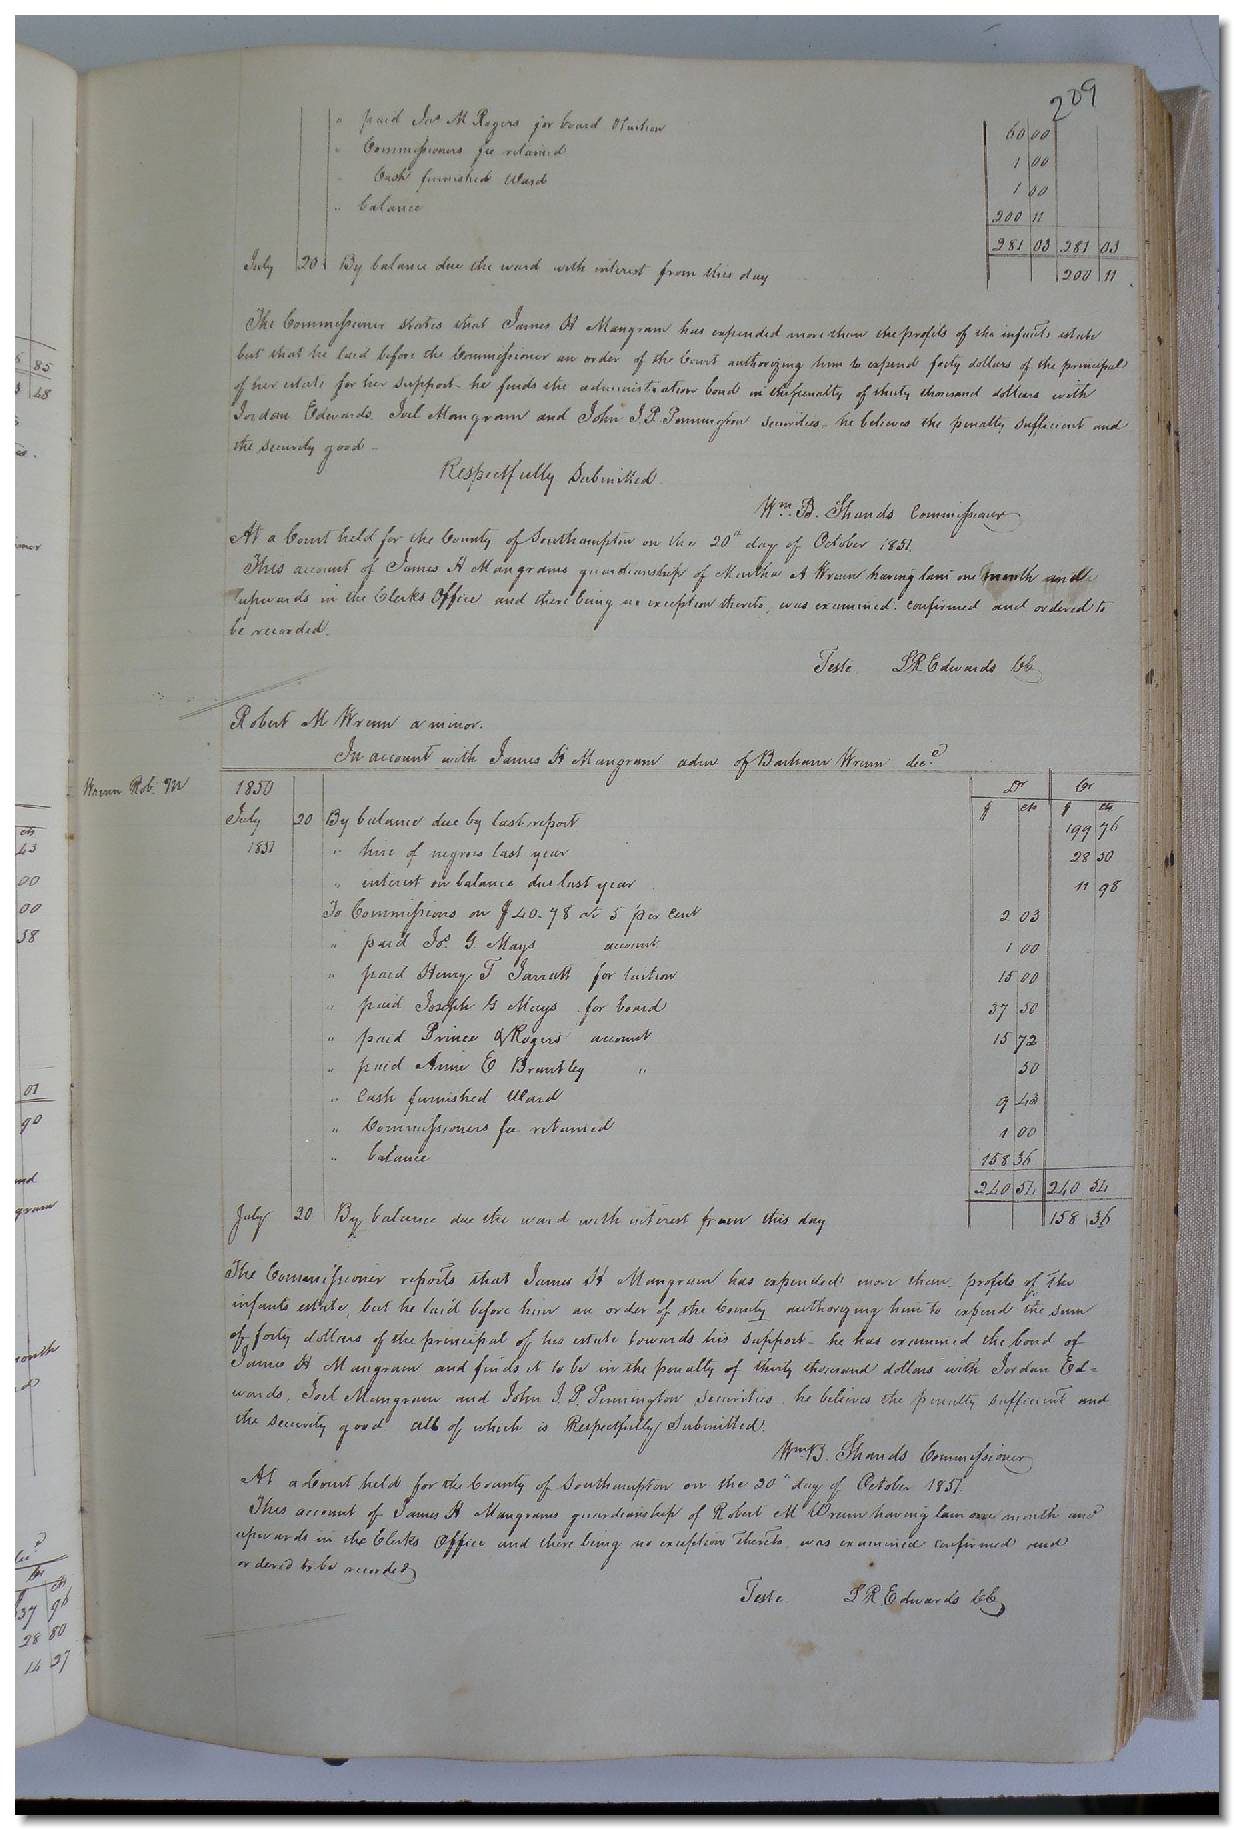 209
" paid Jos M Rogers for board & tuition 60 00
" Commissioners fee retained 1 00
" Cash furnished Ward 1 00
" balance 200 11
281 03 281 03
July 20 By balance due the ward with interest from this day 200 11
The Commissioner states that James H Mangram has expended more than the profits of the infants estate
but that he laid before the Commissioner an order of the Court authorizing him to expend forty dollars of the principal
of her estate for her support - he finds the administration bond in the penalty of thirty thousand dollars with
Jordan Edwards, Joel Mangram and John J. P. Pennington securities - he believes the penalty sufficient and
the security good -
Respectfully Submitted.
Wm. B. Shands Commissioner
At a Court held for the County of Southampton on the 20th day of October 1851.
This account of James H Mangrams guardianship of Martha A Wrenn having lain one month and
upwards in the Clerks Office and there being no exception thereto, was examined, confirmed and ordered to
be recorded.
Teste L R Edwards CC
Robert M Wrenn a minor.
In account with James H Mangram adm of Barham Wrenn decd
Wrenn Rob. M
1850 Dr Cr
$ cts $ cts
July 20 By balance due by last report 199 76
1851 " hire of negroes last year 28 80
" interest on balance due last year 11 98
To Commissions on $40.78 at 5 per cent 2 03
" paid Jos. G. Mays account 1 00
" paid Henry T Jarratt for tuition 15 00
" paid Joseph G Mays for board 37 50
" paid Prince & Rogers account 15 72
" paid Ann E Brantley " 50
" Cash furnished Ward 9 43
" Commissioners fee retained 1 00
" balance 158 36
240 54 240 54
July 20 By balance due the ward with interest from this day 158 36
The Commissioner reports that James H Mangram has expended more than profits of the
infants estate, but he laid before him an order of the County authorizing him to expend the sum
of forty dollars of the principal of his estate towards his support - he has examined the bond of
James H Mangram and finds it to be in the penalty of thirty thousand dollars with Jordan Ed=
wards, Joel Mangram and John J. P. Pennington Securities, he believes the penalty sufficient and
the security good all of which is Respectfully Submitted.
Wm B. Shands Commissioner
At a Court held for the County of Southampton on the 20th day of October 1851.
This account of James H Mangrams guardianship of Robert M Wrenn having lain one month and
upwards in the Clerks Office and there being no exception thereto, was examined confirmed and
ordered to be recorded
Teste L R Edwards CC